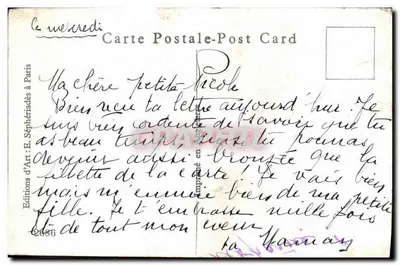 Ce mercredi
Carte Postale-Post Card
Ma chère petite Nicole
Bien reçu ta lettre aujourd'hui. Je
suis bien contente de savoir que tu
as beau temps, tu pourras
devenir aussi bronzée que la
fillette de la carte! Je vais bien
mais m'ennuie bien de ma petite
fille. Je t'embrasse mille fois
de tout mon coeur
ta Maman
Editions d'Art: E. Séphériadès à Paris